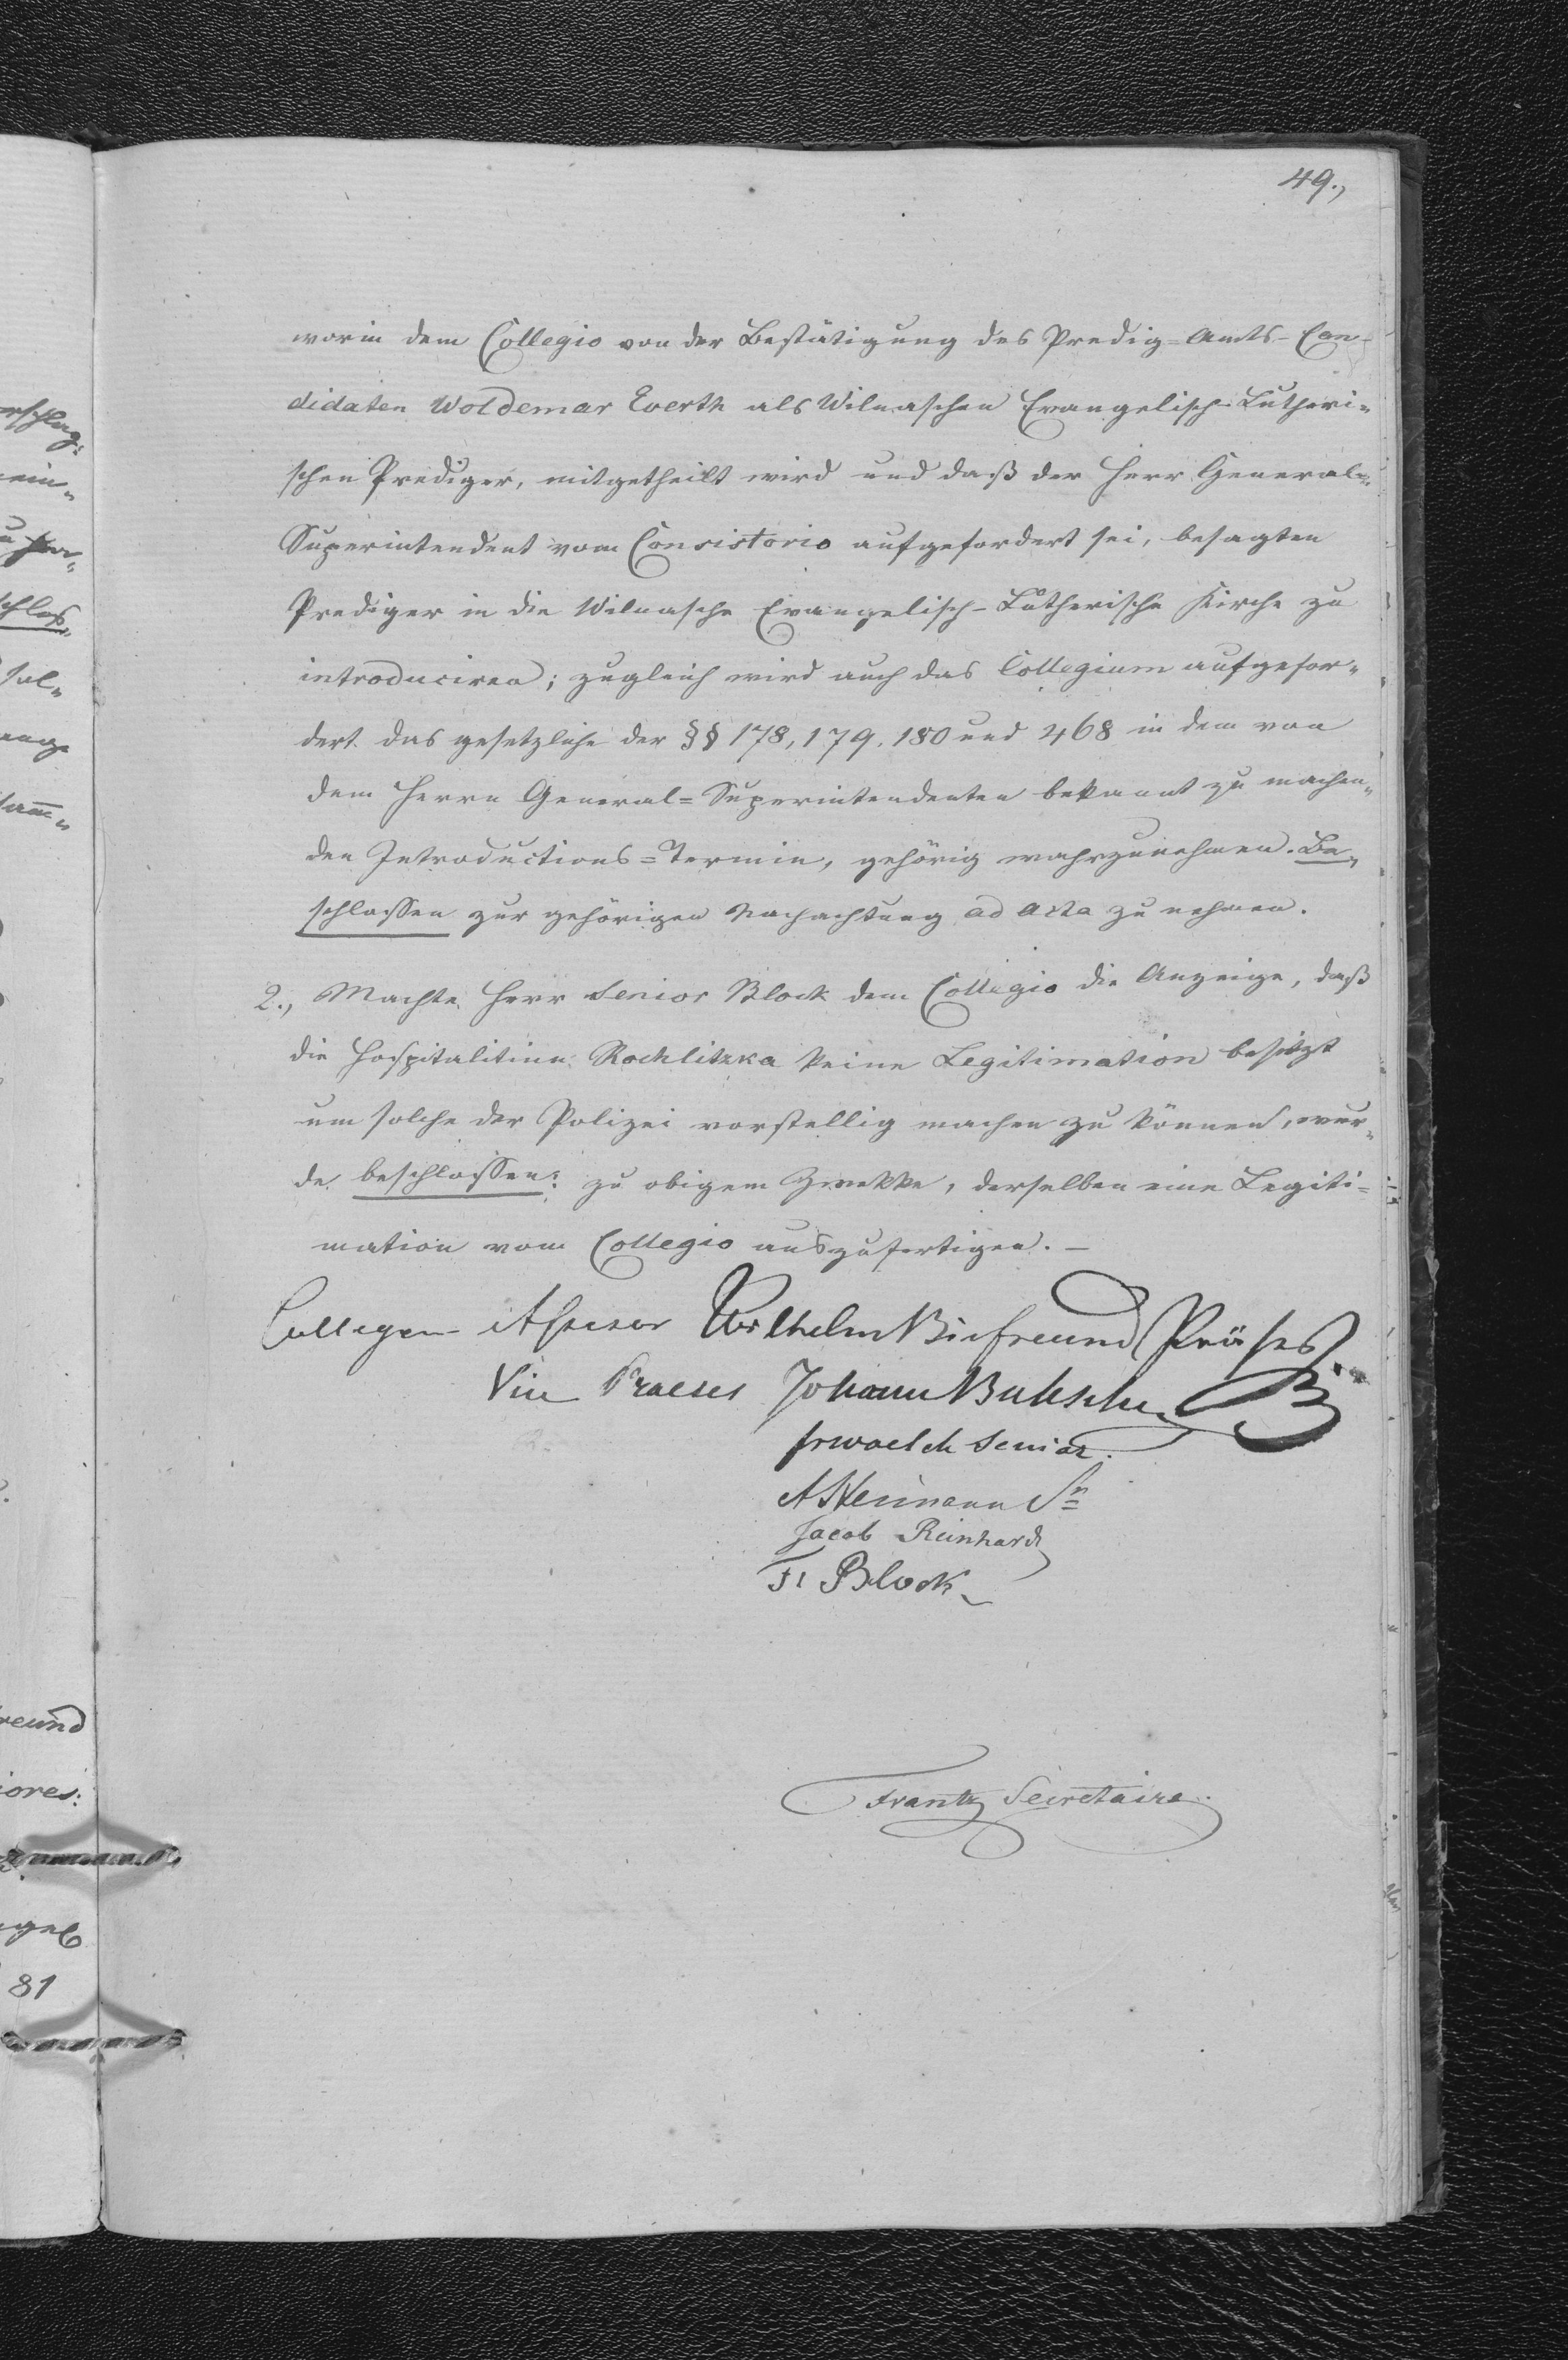 49.,
worin dem Collegio von der Bestätigung des Predig=Amts-Can-
didaten Woldemar Everth als Wilnaschen Evangelisch-Lutheri-
schen Prediger, mitgetheilt wird und daß der Herr General-
Superintendent vom Consistorio aufgefordert sei, besagten
Prediger in die Wilnasche Evangelisch-Lutherische Kirche zu
introduciren; zugleich wird auch das Collegium aufgefor-
dert das gesetzliche der §§ 178, 179, 180 und 468 in dem von
dem Herrn General=Superintendenten bekannt zu machen-
den Introductions=Termin, gehörig wahrzunehmen. Be-
schlossen zur gehörigen Nachachtung ad Acta zu nehmen.
2., Machte Herr Senior Block dem Collegio die Anzeige, daß
die Hospitalitinn Rochlitzka keine Legitimation besitzt
um solche der Polizei vorstellig machen zu können, wur-
de beschlossen: zu obigem Zwekke, derselben eine Legiti-
mation vom Collegio auszufertigen.-
Collegen-Assesor Wilhelm Biefreund Präses
Vice Praeses Johann
Senior.
Jacob Reinhardt
F. Block
Frantz Secretaire.
reund
iores:
81